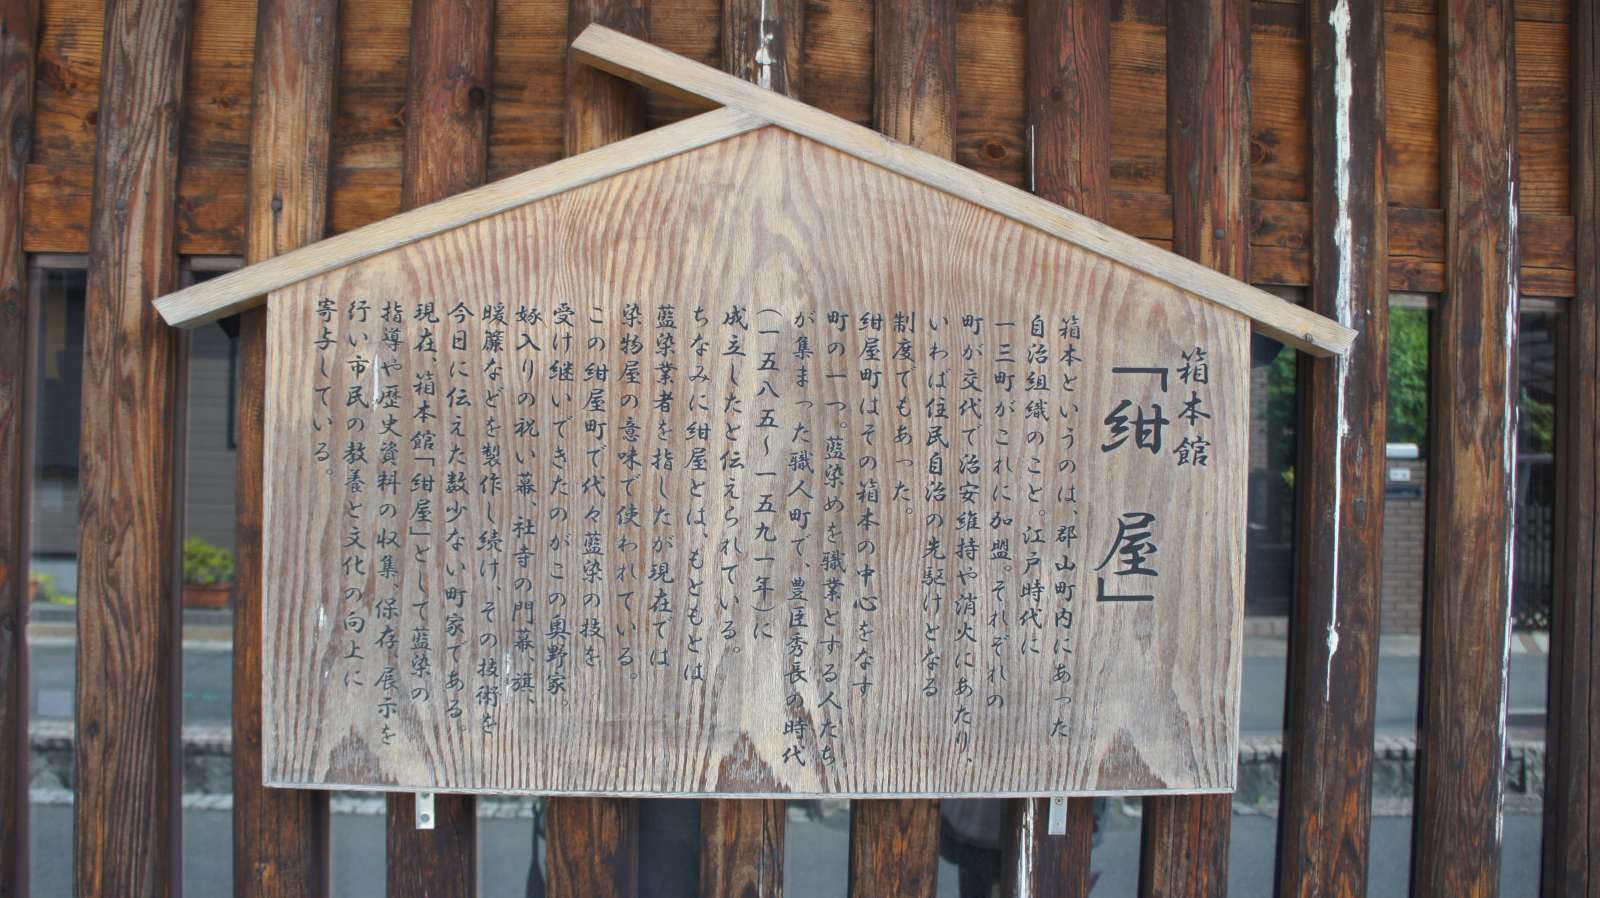 箱本館
「紺屋」
箱本というのは、郡山町内にあった
自治組織のこと。江戸時代に
一三町がこれに加盟。それぞれの
町が交代で治安維持や消火にあたり、
いわば住民自治の先駆けとなる
制度でもあった。
紺屋町はその箱本の中心をなす
町の一つ。藍染めを職業とする人たち
が集まった職人町で、豊臣秀長の時代
(一五八五〜一五九一年)に
成立したと伝えられている。
ちなみに紺屋とは、もともとは
藍染業者を指したが現在では
染物屋の意味で使われている。
この紺屋町で代々藍染の技を
受け継いできたのがこの奥野家。
嫁入りの祝い幕、社寺の門幕、旗、
暖簾などを製作し続け、その技術を
今日に伝えた数少ない町家である。
現在、箱本館「紺屋」として藍染の
指導や歴史資料の収集、保存、展示を
行い市民の教養と文化の向上に
寄与している。